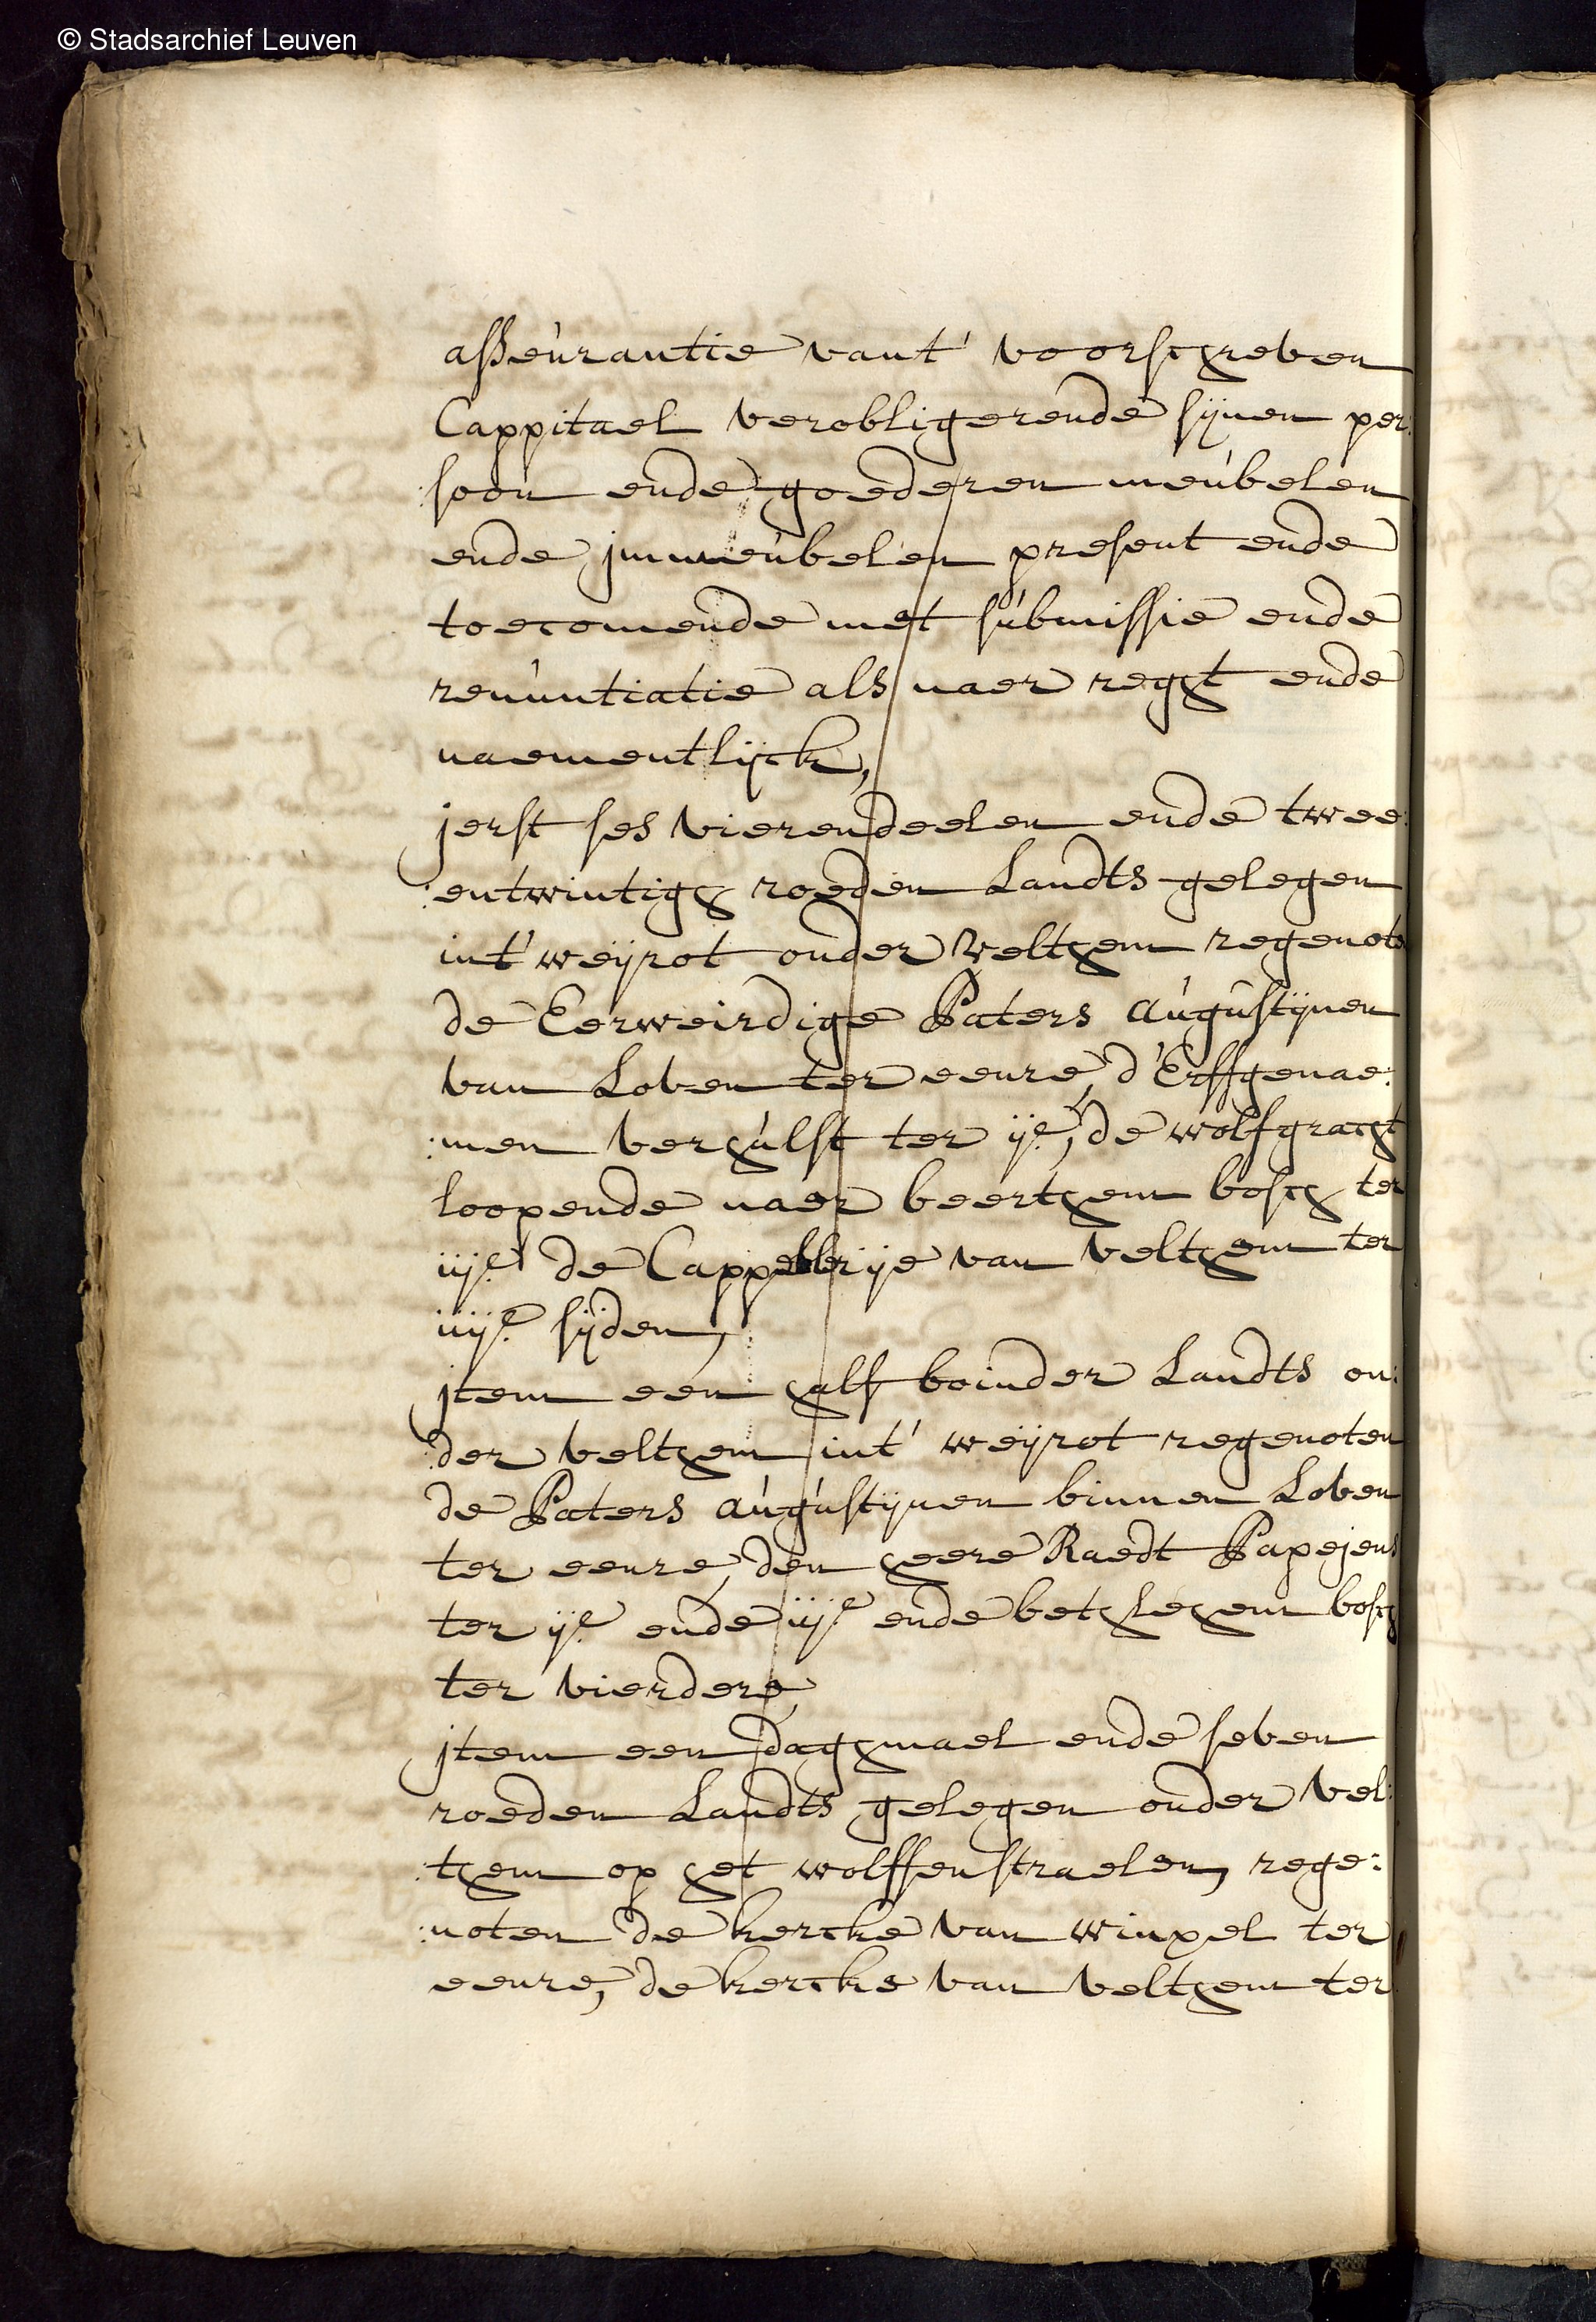 © Stadsarchief Leuven
asseurantie vant' voorschreven
Cappitael verobligerende sijnen per:
:soon ende goederen meubelen
ende jmmeubelen present ende
toecomende met submissie ende
renuntiatie als naer reght ende
naementlijck,
jerst ses vierendeelen ende twee:
:entwintigh roeden Landts gelegen
int' weijrot onder Velthem regenoten
de Eerweirdige Paters augustijnen
van Loven ter eenre, d'Erffgenae:
:men verhulst ter ije, de wolfgracht
loopende naer beerthem bosch ter
iije de Cappellerije van velthem ter
iiije sijden,
jtem een half boinder Landts on:
:der velthem int' weijrot regenoten
de Paters augustijnen binnen Loven
ter eenre, den heere Raedt Papejens
ter ije ende iije ende bethlehem bosch
ter vierdere,
jtem een daghmael ende seven
roeden Landts gelegen onder vel:
:them op het wolffenstraelen, rege:
:noten de kercke van winxel ter
eenre, de kercke van velthem ter